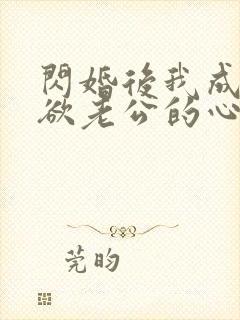 閃婚後我成
欲老公的心
莞昀